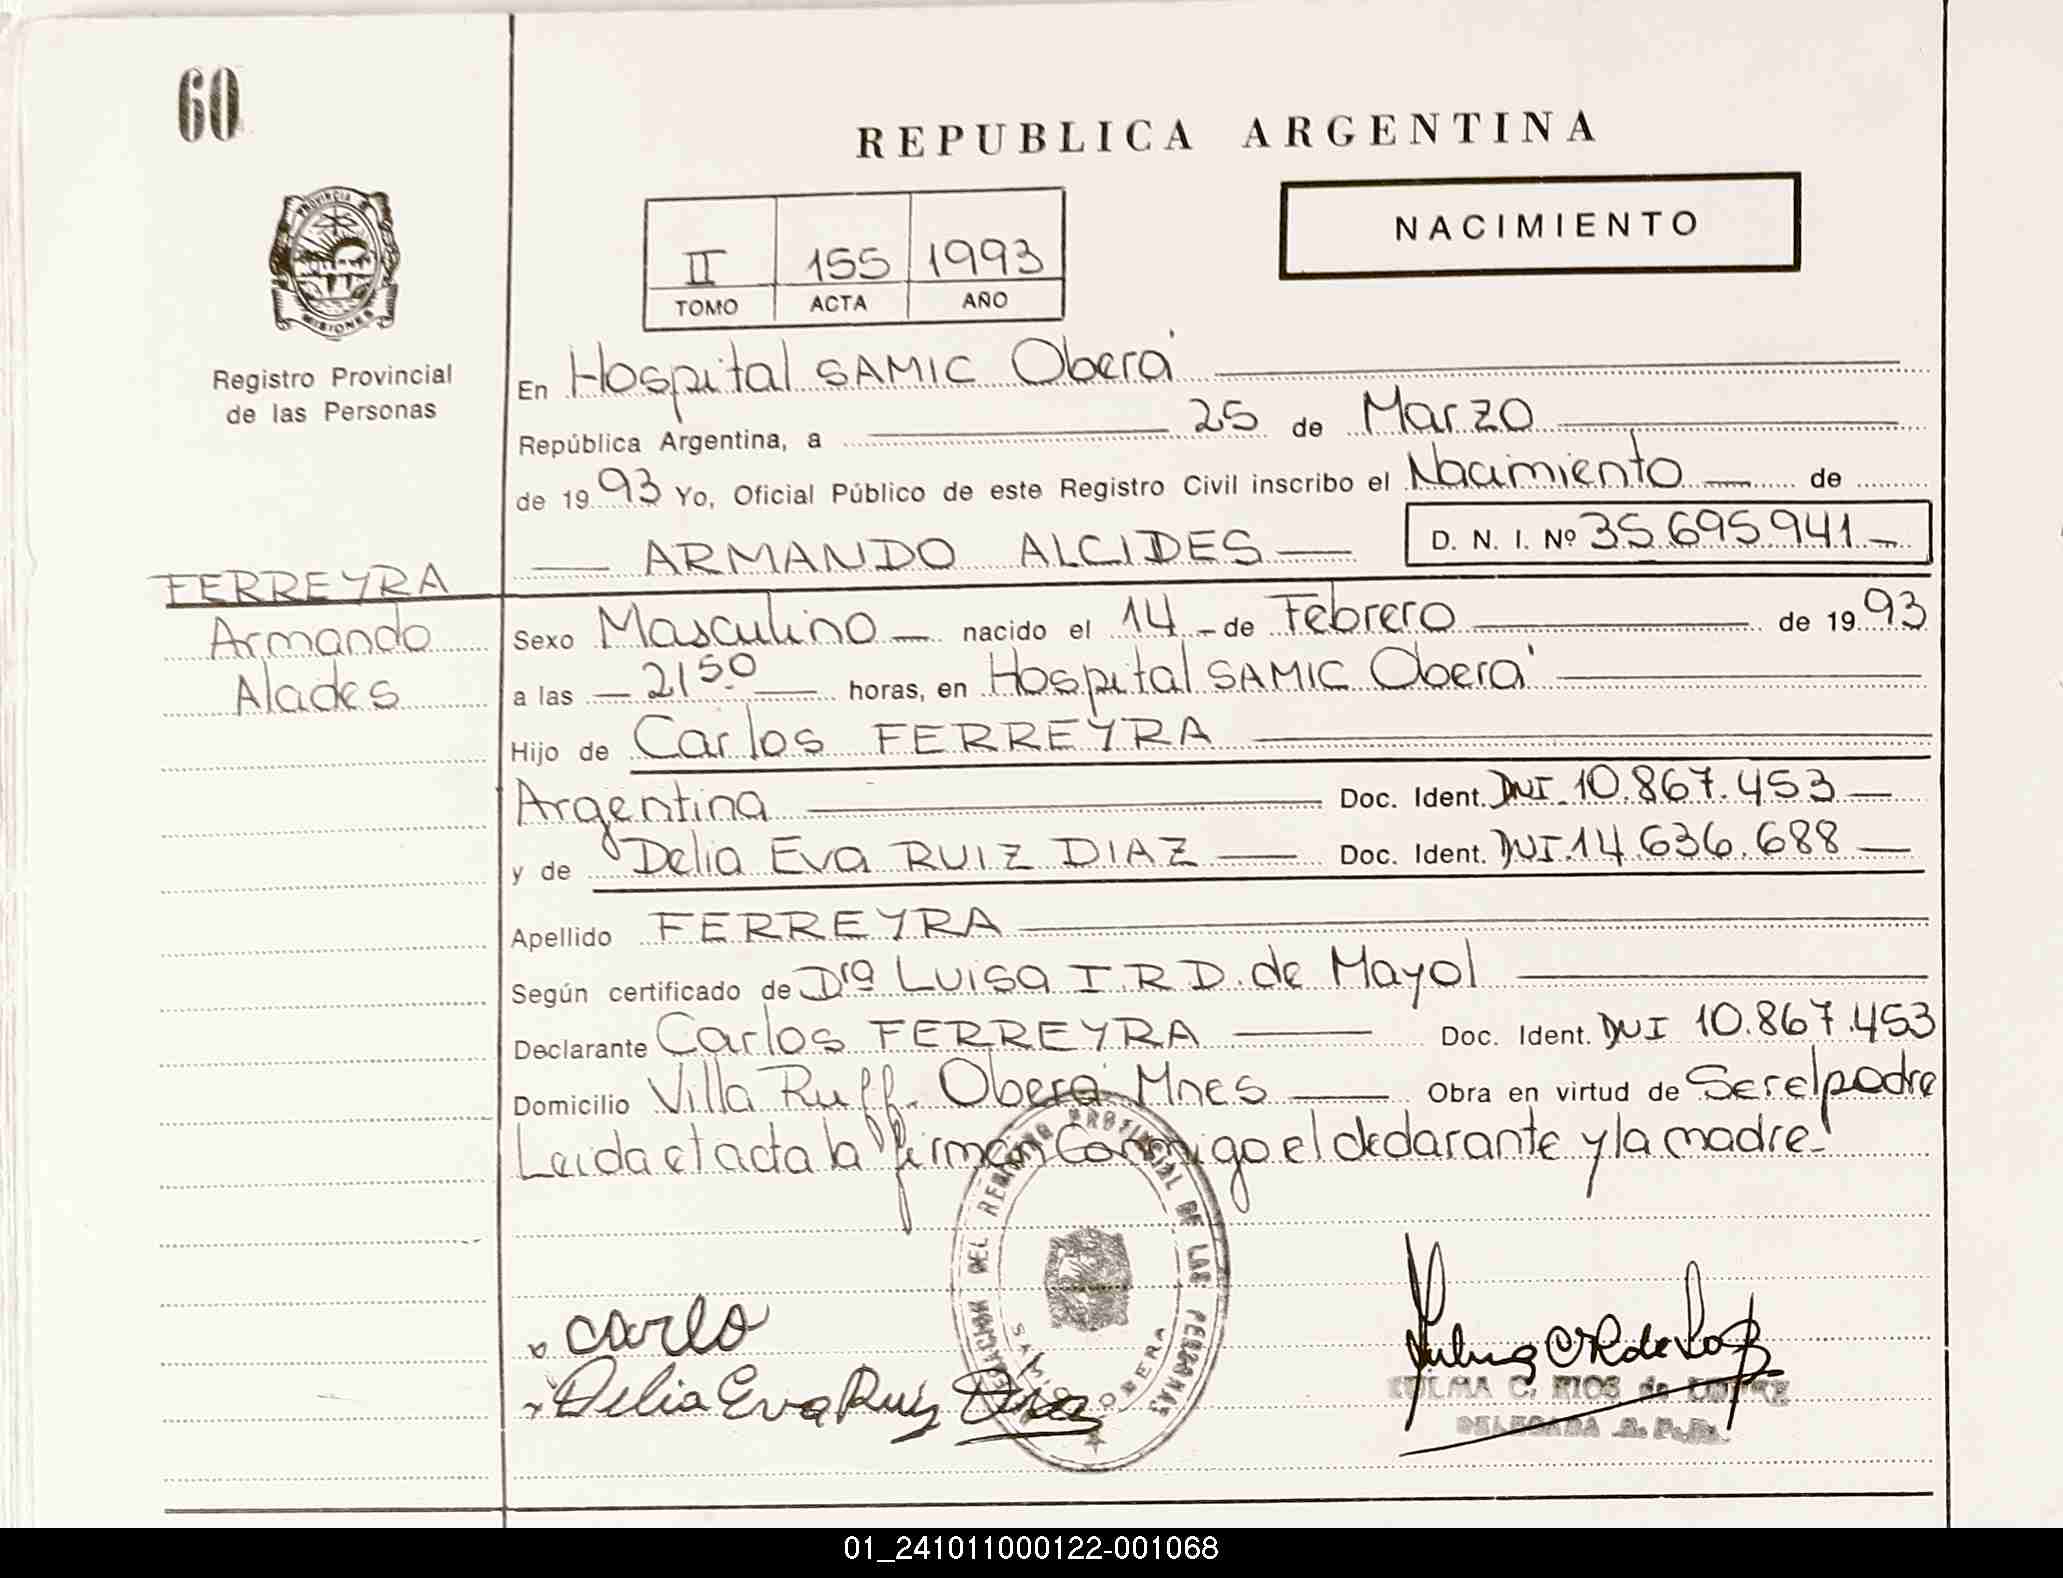 60
REPUBLICA ARGENTINA
NACIMIENTO
II 155 1993
TOMO ACTA AÑO
PROVINCIA DE
MISIONES
Registro Provincial
de las Personas
En Hospital SAMIC Oberá
República Argentina, a 25 de Marzo
de 1993 Yo, Oficial Público de este Registro Civil inscribo el Nacimiento de
ARMANDO ALCIDES D. N. I. Nº 35.695.941
FERREYRA
Armando
Alcides
Sexo Masculino nacido el 14 de Febrero de 1993
a las 2150 horas, en Hospital SAMIC Oberá
Hijo de Carlos FERREYRA
Argentina Doc. Ident. DNI.10.867.453
y de Delia Eva RUIZ DIAZ Doc. Ident. DNI.14.636.688
Apellido FERREYRA
Según certificado de Drª Luisa I.R.D. de Mayol
Declarante Carlos FERREYRA Doc. Ident. DNI 10.867.453
Domicilio Villa Ruff. Oberá Mnes Obra en virtud de Ser el padre
Leida el acta la firman Conmigo el declarante y la madre.
DEL REGISTRO PROVINCIAL DE LAS PERSONAS
SAMIC OBERA
carlo
Delia Eva Ruiz Diaz
ZULMA C. RIOS de
DELEGADA R. P. P.
01_241011000122-001068